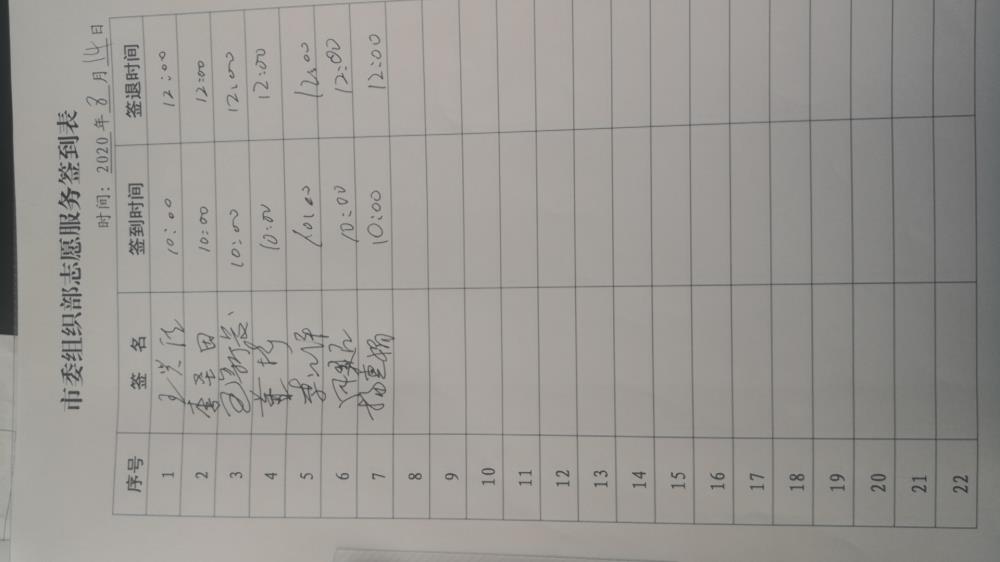 市委组织部志愿服务签到表
时间：2020年8月14日
序号 签 名 签到时间 签退时间
1 10:00 12:00
2 李圣田 10:00 12:00
3 10:00 12:00
4 10:00 12:00
5 10:00 12:00
6 10:00 12:00
7 10:00 12:00
8
9
10
11
12
13
14
15
16
17
18
19
20
21
22